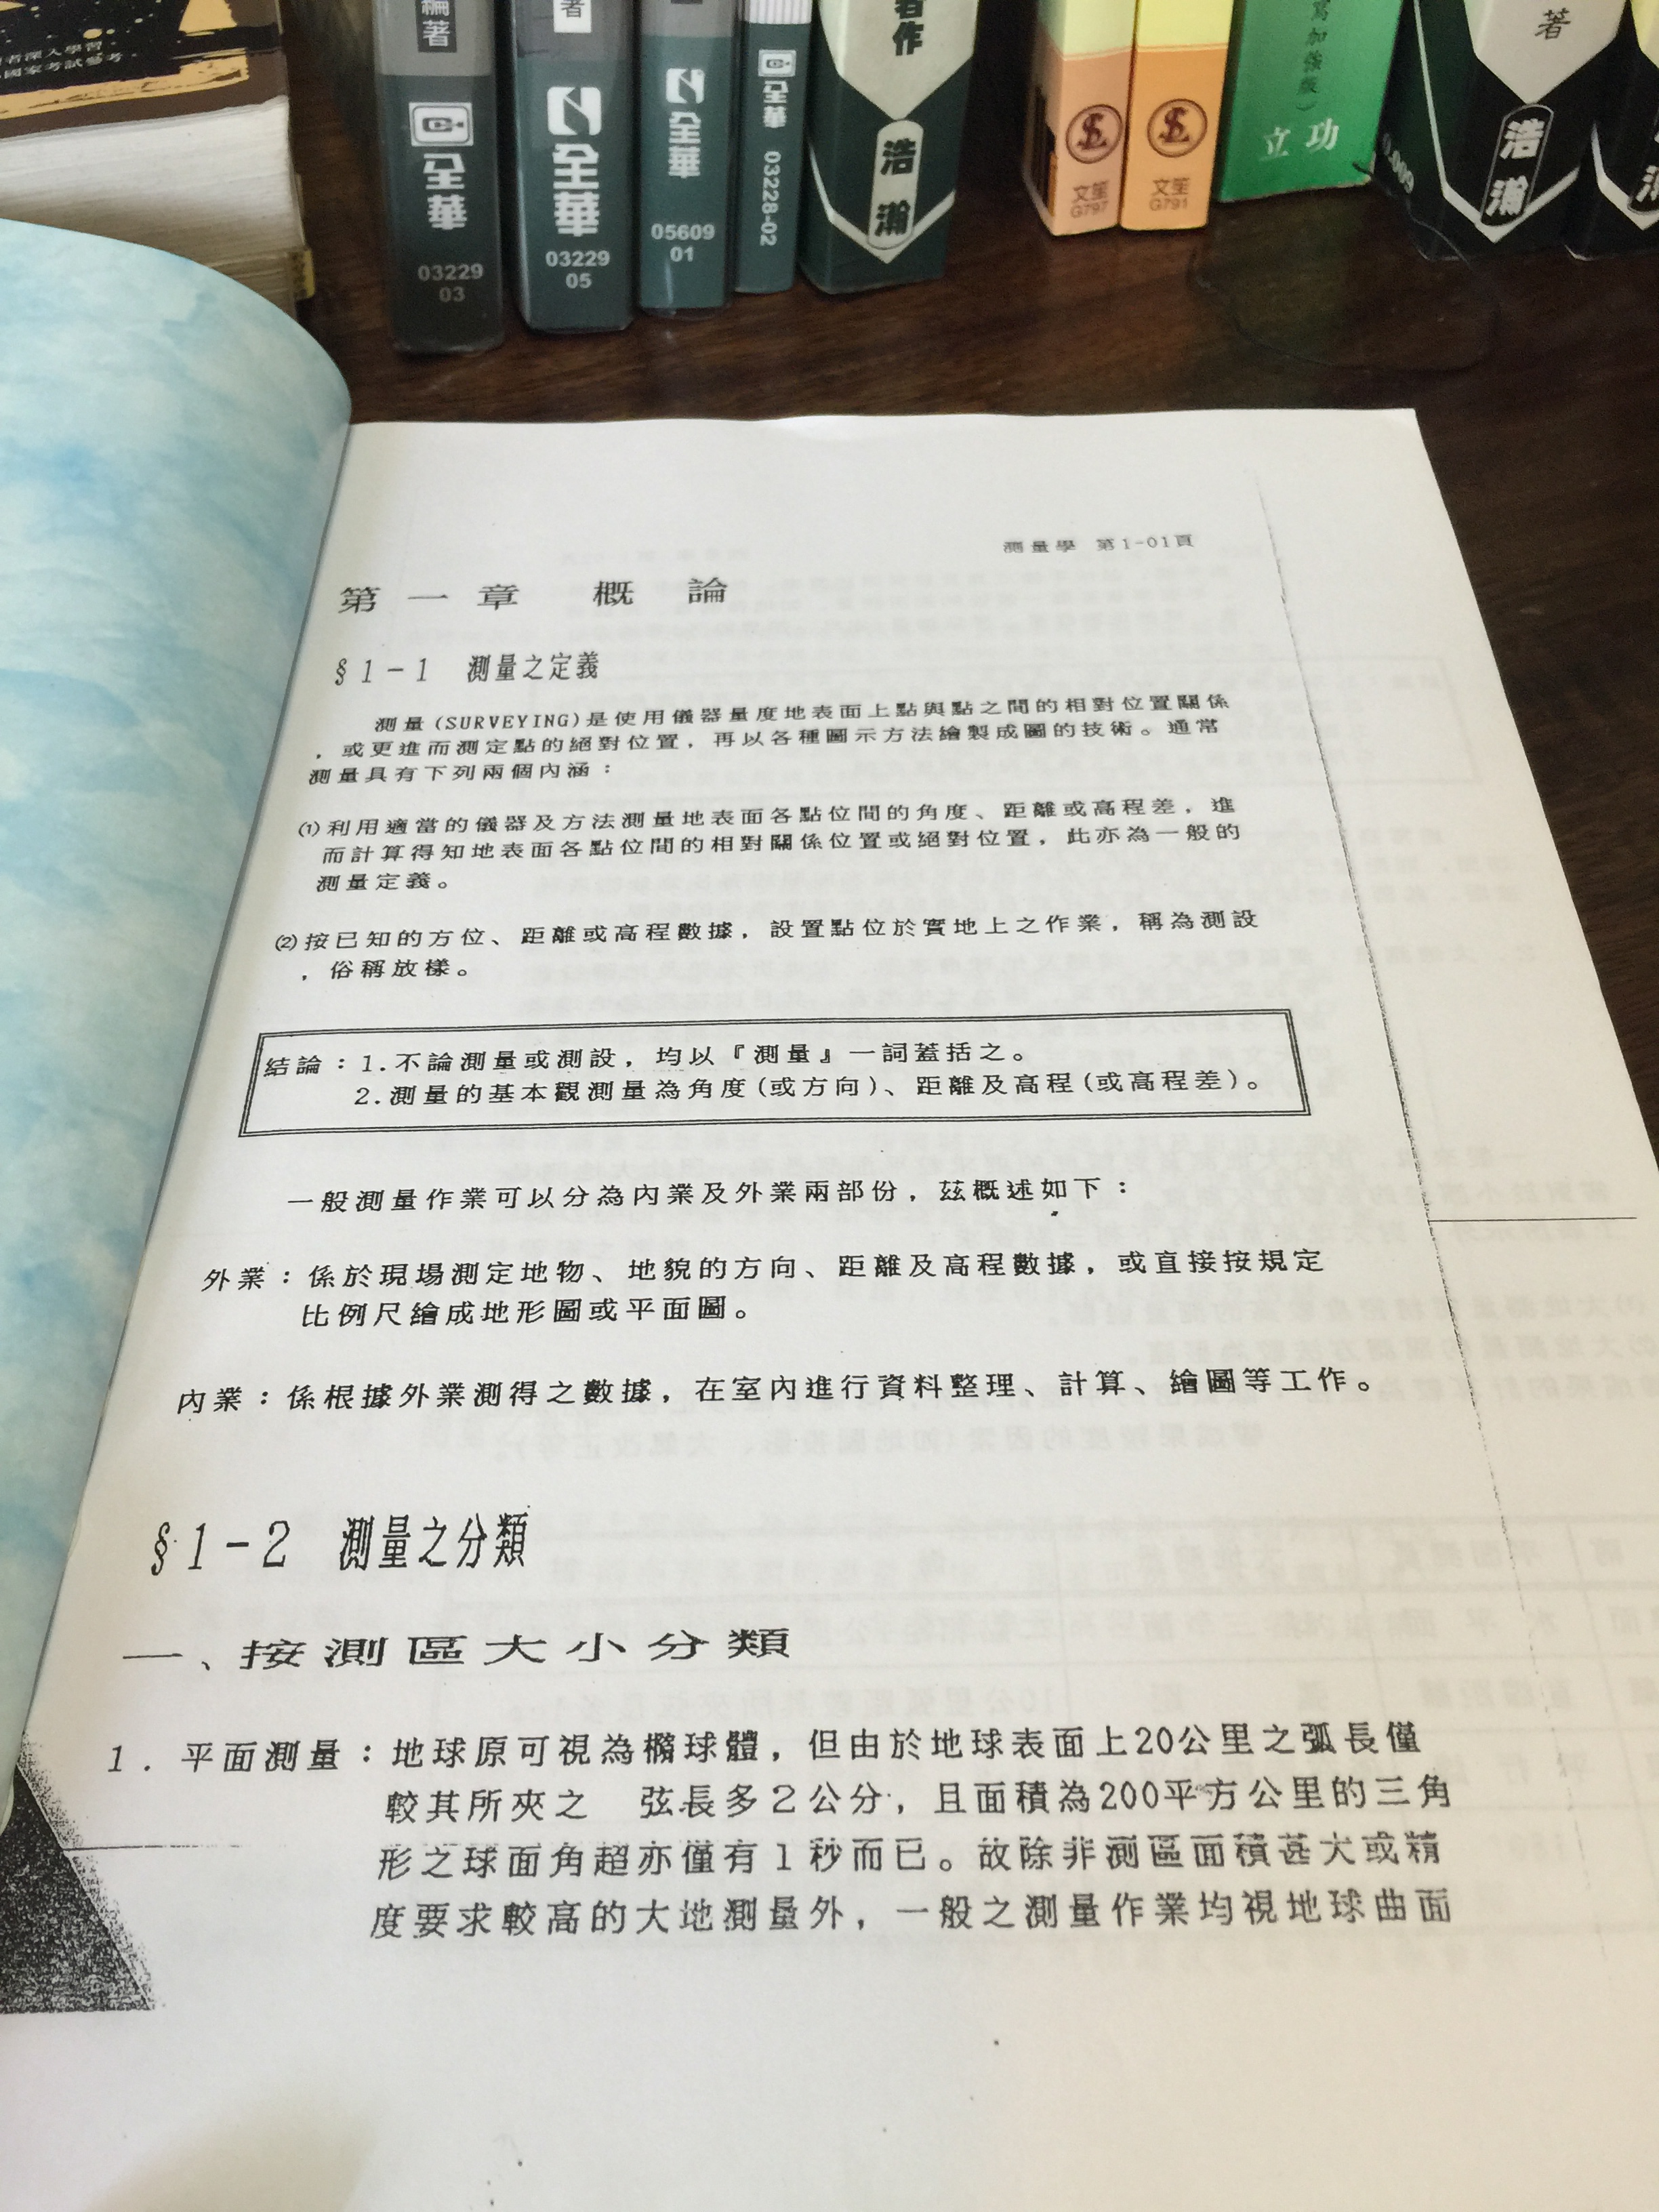 者深入學習，
國家考試參考
編著
全華
03229
03
著
全華
03229
05
全華
05609
01
全華
03228-02
著作
浩瀚
文笙
G797
文笙
G791
加強版）
立功
0.009
著
浩瀚
測量學 第1-01頁
第一章 概論
§1-1 測量之定義
測量(SURVEYING)是使用儀器量度地表面上點與點之間的相對位置關係
，或更進而測定點的絕對位置，再以各種圖示方法繪製成圖的技術。通常
測量具有下列兩個內涵：
⑴利用適當的儀器及方法測量地表面各點位間的角度、距離或高程差，進
而計算得知地表面各點位間的相對關係位置或絕對位置，此亦為一般的
測量定義。
⑵按已知的方位、距離或高程數據，設置點位於實地上之作業，稱為測設
，俗稱放樣。
結論：1.不論測量或測設，均以『測量』一詞蓋括之。
2.測量的基本觀測量為角度(或方向)、距離及高程(或高程差)。
一般測量作業可以分為內業及外業兩部份，茲概述如下：
外業：係於現場測定地物、地貌的方向、距離及高程數據，或直接按規定
比例尺繪成地形圖或平面圖。
內業：係根據外業測得之數據，在室內進行資料整理、計算、繪圖等工作。
§1-2 測量之分類
一、按測區大小分類
1．平面測量：地球原可視為橢球體，但由於地球表面上20公里之弧長僅
較其所夾之 弦長多2公分，且面積為200平方公里的三角
形之球面角超亦僅有1秒而已。故除非測區面積甚大或精
度要求較高的大地測量外，一般之測量作業均視地球曲面